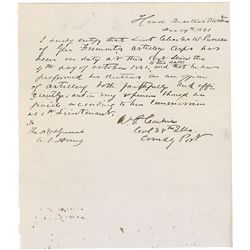 Head Quarters
Dec 14th 1861
I hereby certify that Lieut Charles W. Purse
of Gen Fremonts artillery Corps has
been on duty at this Post since the
9th day of October 1861, and that he has
performed his duties as an officer
of artillery both faithfully and
and in my opinion should be
paid according to his commission
as 1st Lieutenant.
To
U.S. Army
Col 38th Ills
Comdg Post